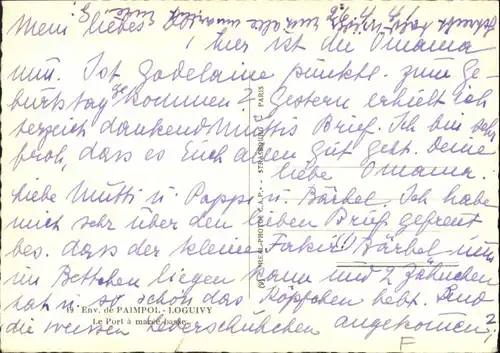 Mein liebes
hier ist die Omama
nun. Ist Godelaine pünktl. zum Ge-
burtstag gekommen? Gestern erhielt ich
herzlich dankend Muttis Brief. Ich bin sehr
froh, dass es Euch allen gut geht. Deine
liebe Omama.
Liebe Mutti u. Pappi u. Bärbel. Ich habe
mich sehr über den lieben Brief gefreut
bes. dass der kleine Fakir Bärbel nun
im Bettchen liegen kann und 2 Zähnchen
hat u. so schön das Köpfchen hebt. Sind
die weissen Lederschühchen angekommen?
F
19 Env. de PAIMPOL - LOGUIVY
Le Port à marée basse
(V) REAL-PHOTO C.A.P. - STRASBOURG - PARIS